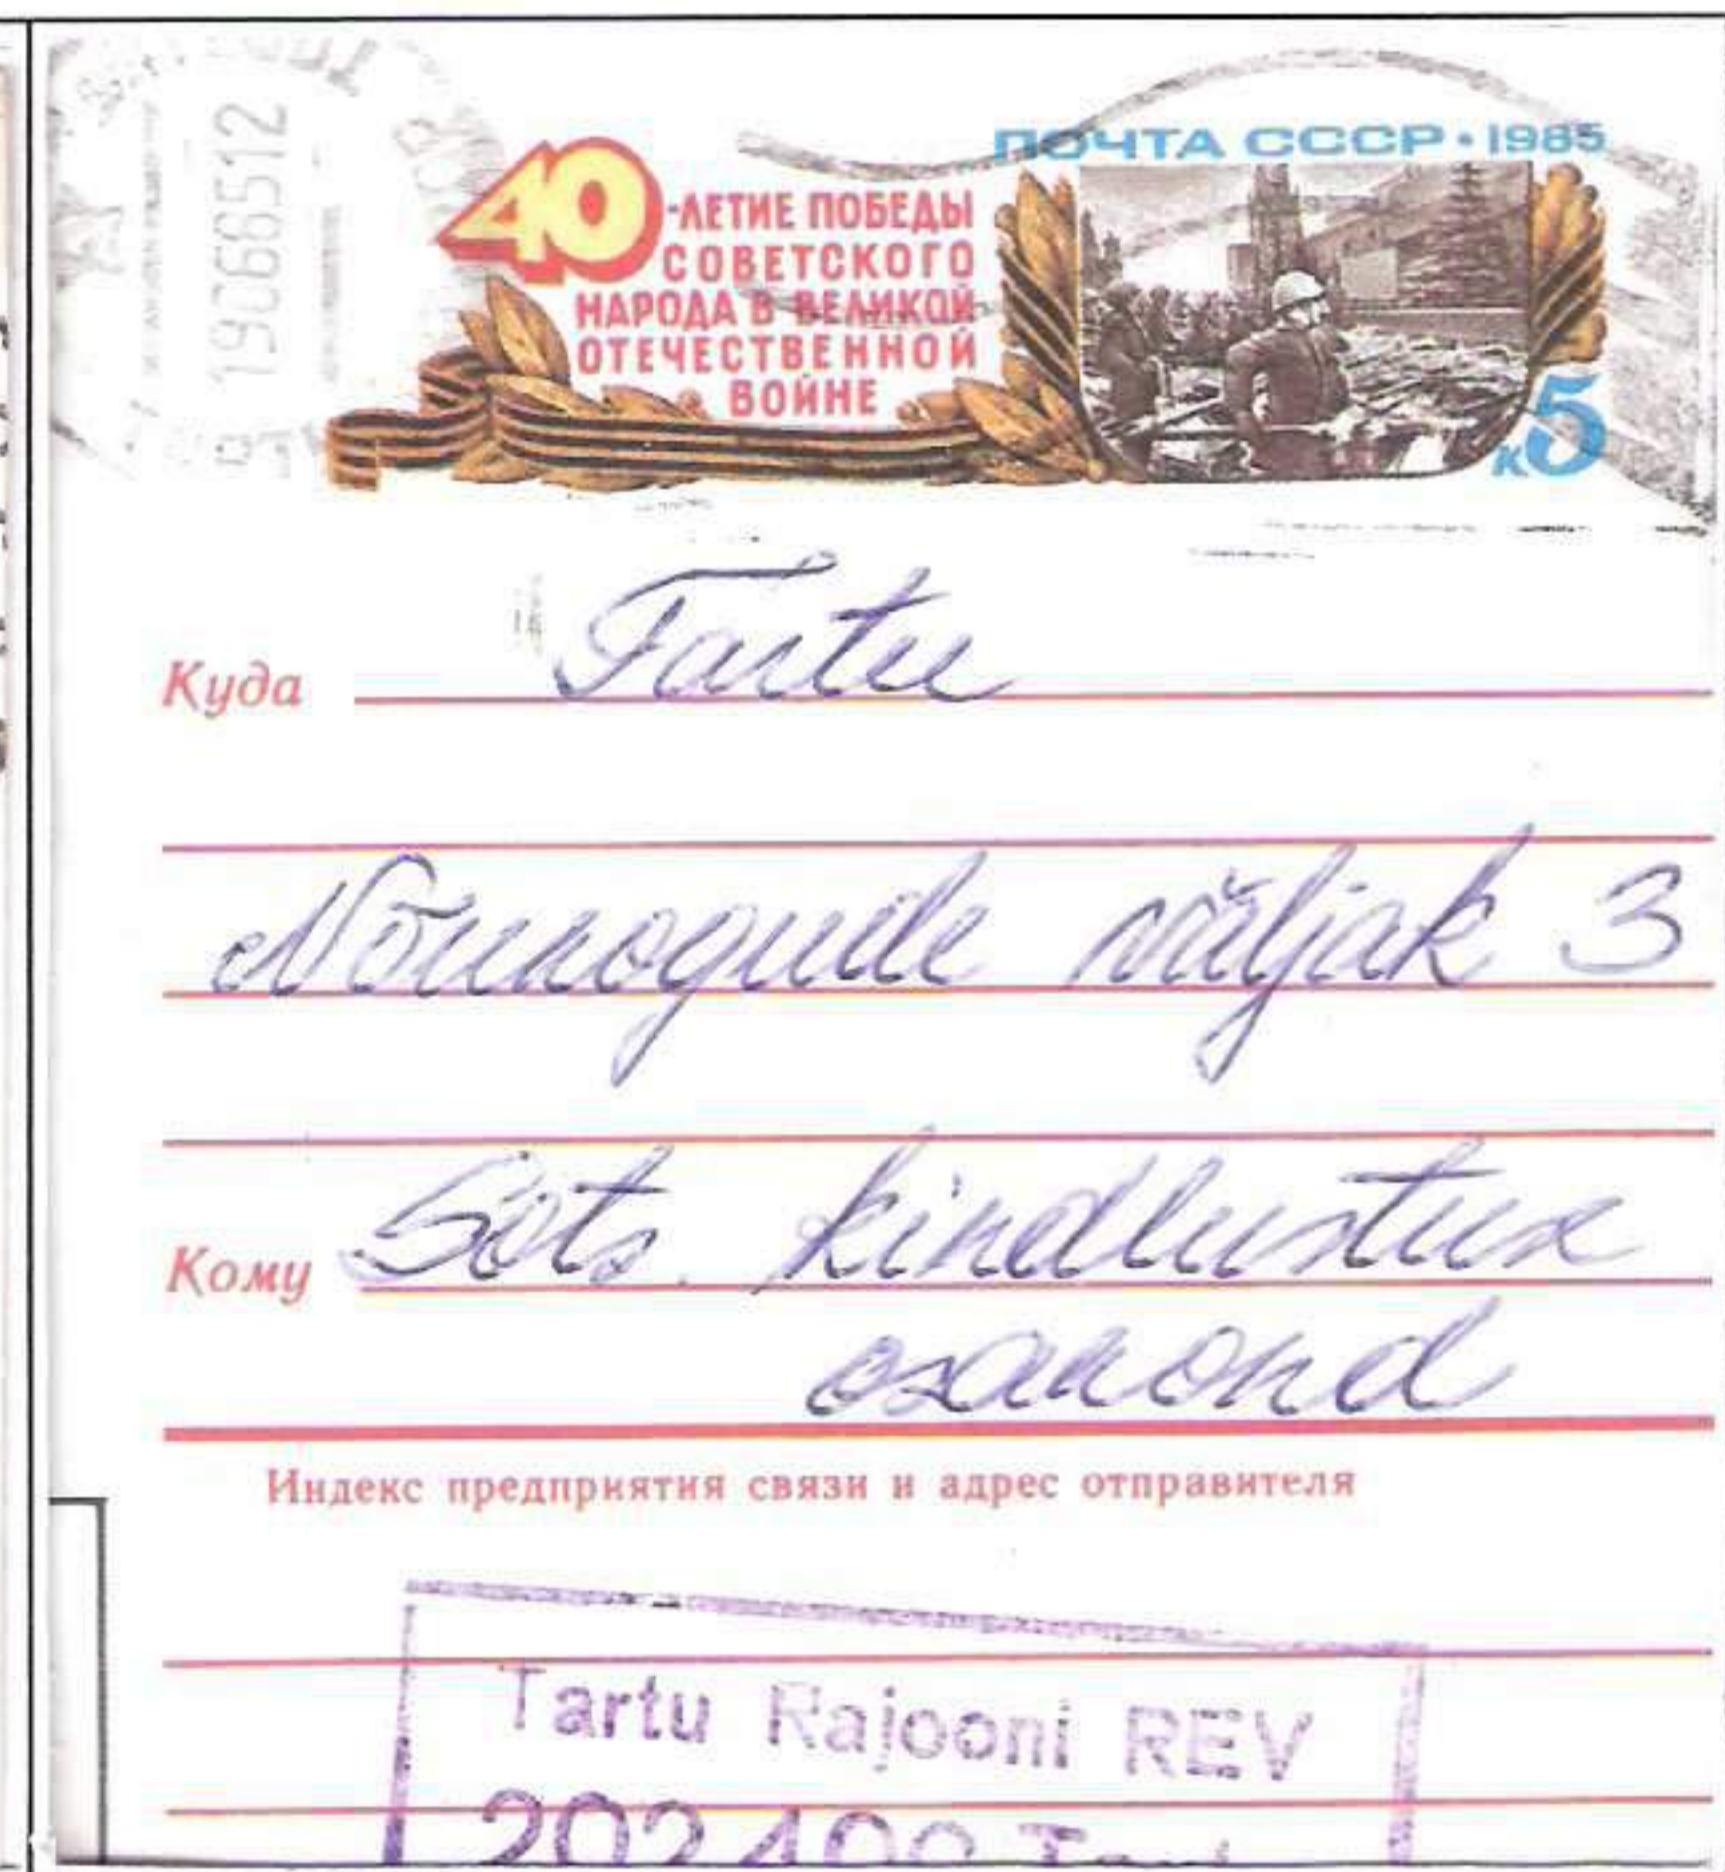 19068512
ПОЧТА СССР • 1985
40-ЛЕТИЕ ПОБЕДЫ
СОВЕТСКОГО
НАРОДА В ВЕЛИКОЙ
ОТЕЧЕСТВЕННОЙ
ВОЙНЕ
к5
Куда Tartu
Nõukogude väljak 3
Кому Sots. kindlustus
osakond
Индекс предприятия связи и адрес отправителя
Tartu Rajooni REV
202400